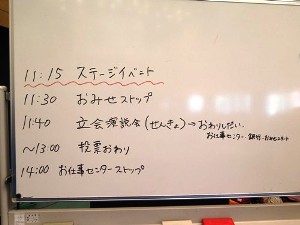 11:15 ステージイベント
11:30 おみせストップ
11:40 立会演説会(せんきょ)→おわりしだい、
お仕事センター、銀行、おみせスタート
～13:00 投票おわり
14:00 お仕事センターストップ